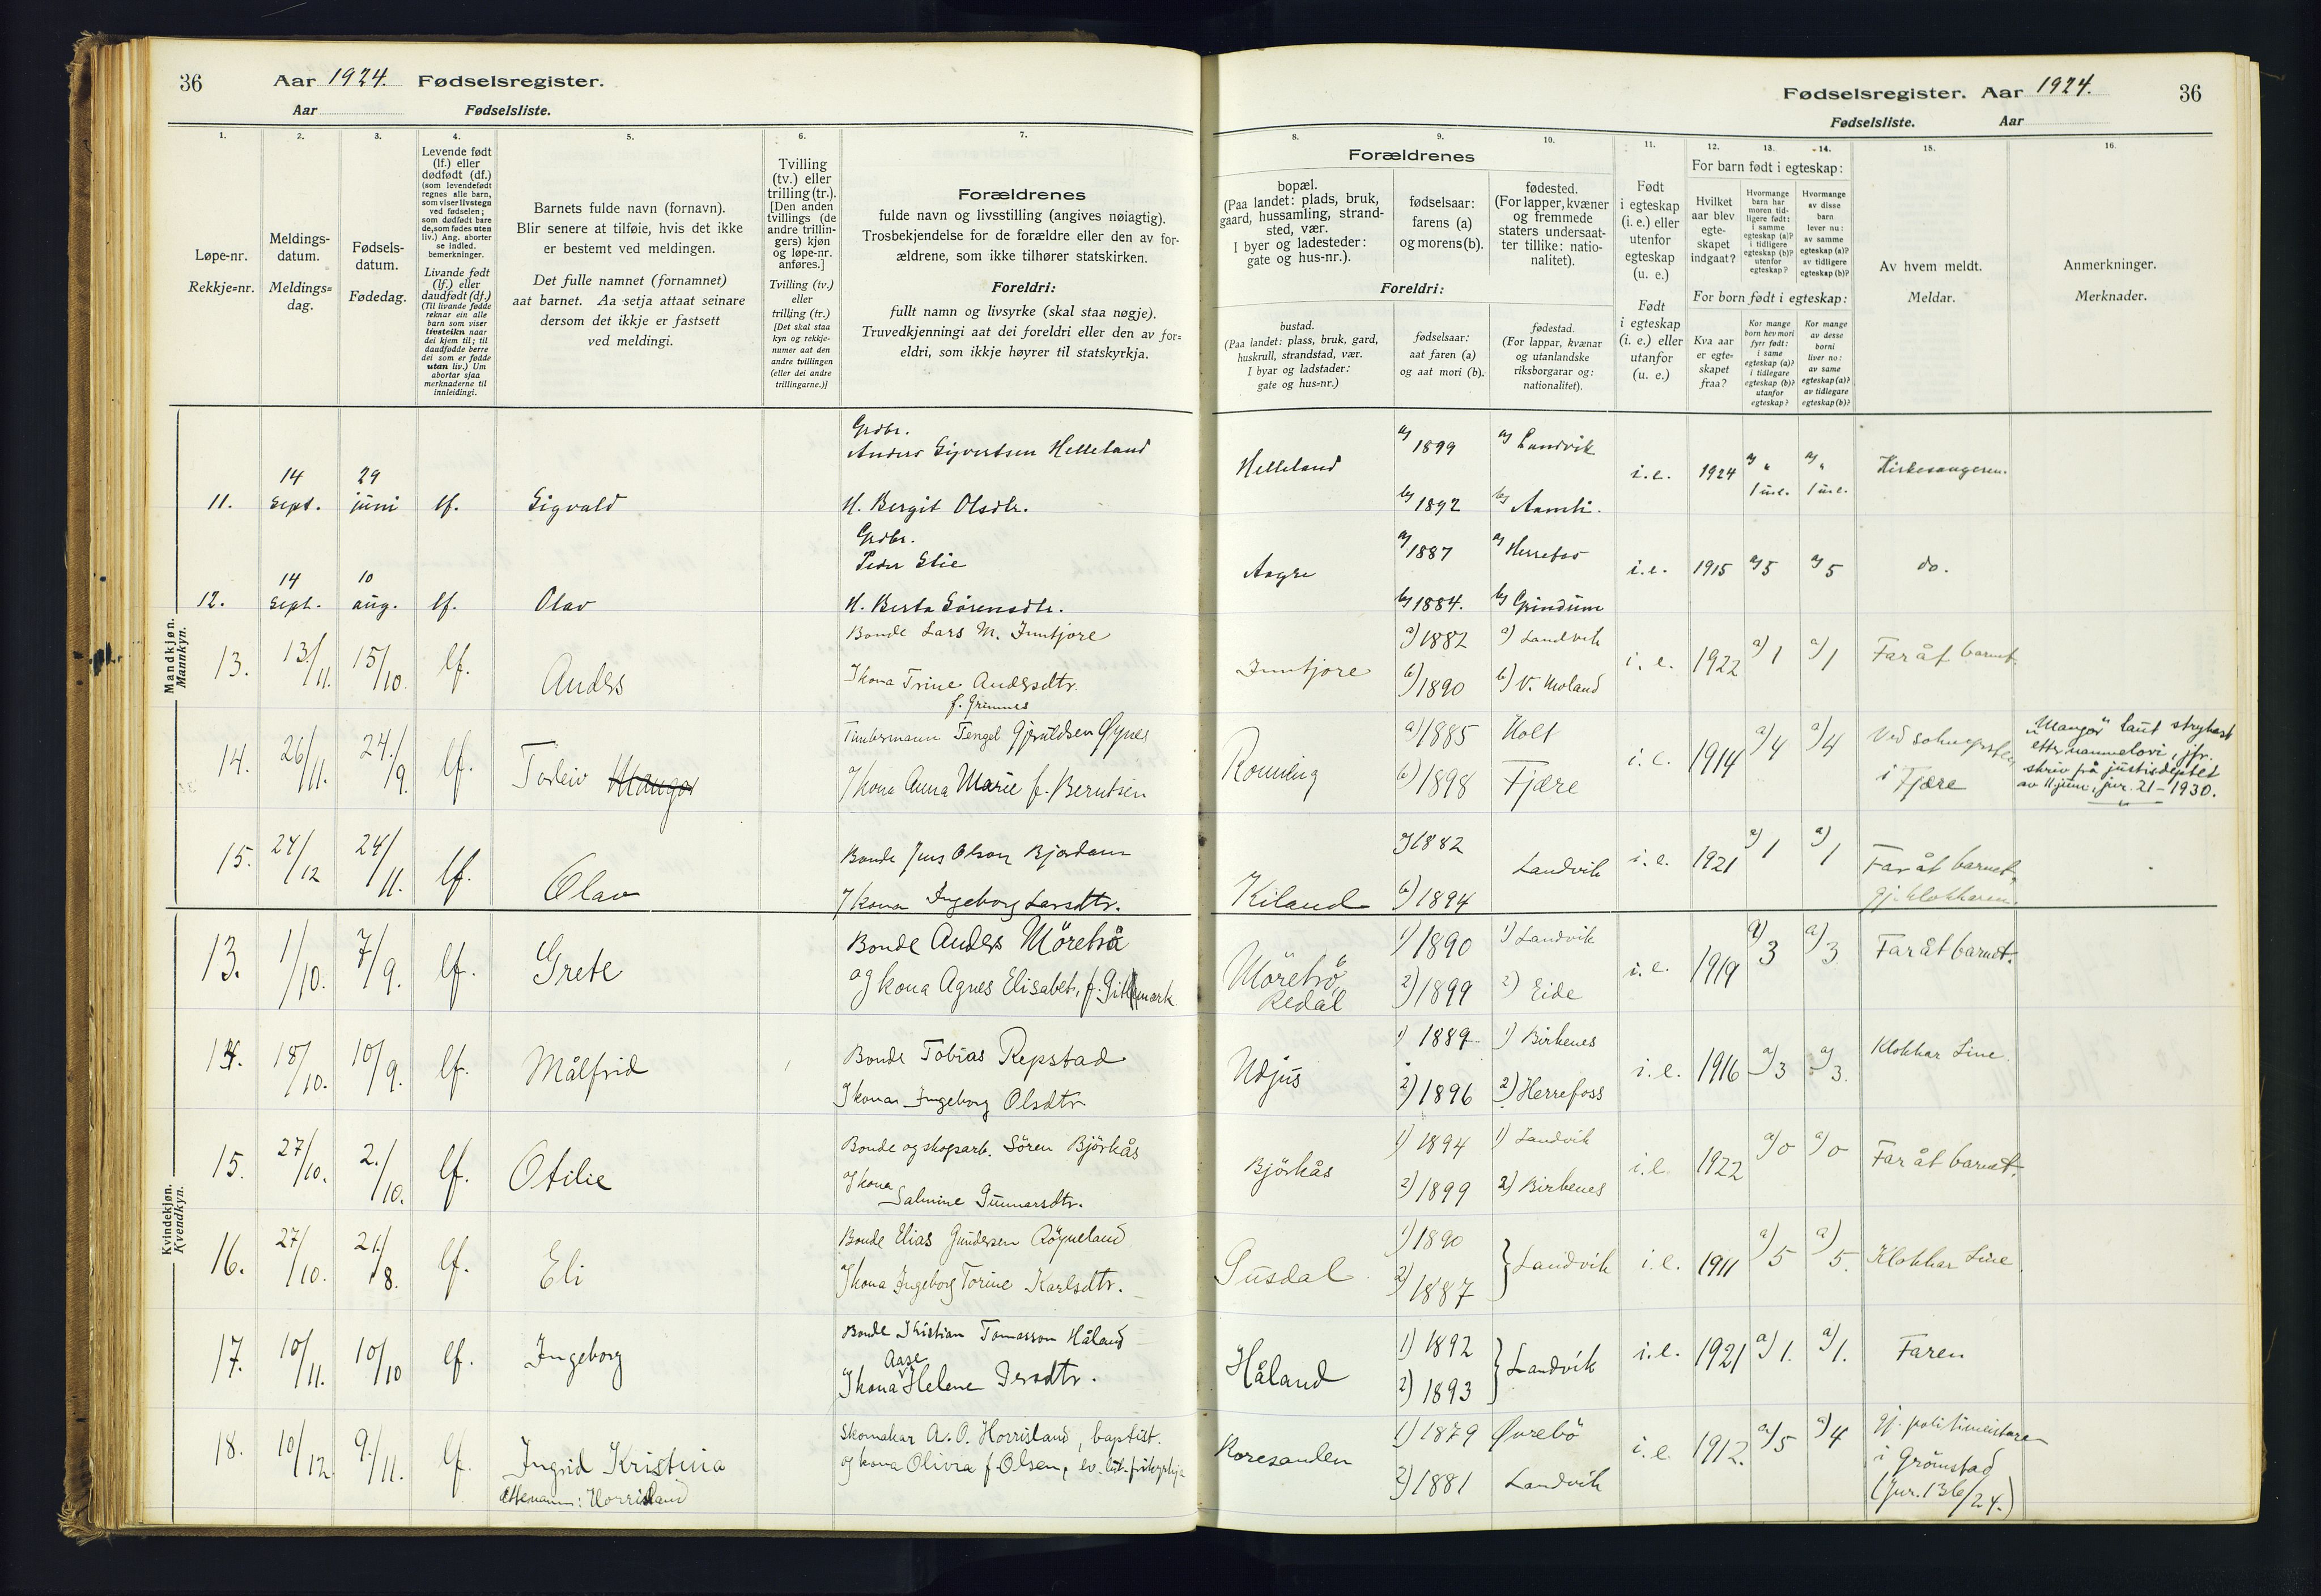 36 Aar 1924. Fødselsregister.
Aar Fødselsliste.
1. 2. 3. 4. 5. 6. 7.
Løpe-nr.
Rekkje=nr.
Meldings-
datum.
Meldings=
dag.
Fødsels-
datum.
Fødedag.
Levende født
(lf.) eller
dødfødt (df.)
(som levendefødt
regnes alle barn,
som viser livstegn
ved fødselen;
som dødfødt bare
de, som fødes uten
liv.) Ang. aborter
se indled.
bemerkninger.
Livande født
(lf.) eller
daudfødt (df.)
(Til livande fødde
reknar ein alle
barn som viser
livsteikn naar
dei kjem til; til
daudfødde berre
dei som er fødde
utan liv.) Um
abortar sjaa
merknaderne til
innleidingi.
Barnets fulde navn (fornavn).
Blir senere at tilføie, hvis det ikke
er bestemt ved meldingen.
Det fulle namnet (fornamnet)
aat barnet. Aa setja attaat seinare
dersom det ikkje er fastsett
ved meldingi.
Tvilling
(tv.) eller
trilling (tr.).
[Den anden
tvillings (de
andre trillin-
gers) kjøn
og løpe-nr.
anføres.]
Tvilling (tv.)
eller
trilling (tr.)
[Det skal staa
kyn og rekkje-
numer aat den
andre tvillingen
(eller dei andre
trillingarne.)]
Forældrenes
fulde navn og livsstilling (angives nøiagtig).
Trosbekjendelse for de forældre eller den av for-
ældrene, som ikke tilhører statskirken.
Foreldri:
fullt namn og livsyrke (skal staa nøgje).
Truvedkjenningi aat dei foreldri eller den av for=
eldri, som ikkje høyrer til statskyrkja.
Mandkjøn.
Mannkyn.
11. 14 Sept. 29 juni lf. Sigvald
Grdbr.
Anders Sigvertsen Helleland
H. Bergit Olsdtr.
12. 14 Sept. 10 aug. lf. Olav
Grdbr.
Peder Stie
H. Berta Sørensdtr.
13. 13/11. 15/10. lf. Anders
Bonde Lars M. Inntjore
Ikona Trine Andersdtr.
f. Grimnes
14. 26/11. 24./9. lf. Torleiv Mangor
Timbermann Tengel Gjeruldsen Øynes
Ikona Anna Marie f. Berntsen
15. 24/12 24/11. lf. Olav
Bonde Jens Olson Bjordam
Ikona Ingeborg Larsdtr.
Kvindekjøn.
Kvendkyn.
13. 1/10. 7/9. lf. Grete
Bonde Anders Möretrå
og kona Agnes Elisabet, f. Gitmark
14. 18/10. 10/9. lf. Målfrid
Bonde Tobias Repstad
Ikona Ingeborg Olsdtr.
15. 27/10. 2./10. lf. Otilie
Bonde og skogsarb. Sören Björkås
Ikona
Salmine Gunnarsdtr.
16. 27/10. 21./8. lf. Eli
Bonde Elias Gundersen Röyneland
Ikona Ingeborg Torine Karlsdtr.
17. 10/11. 10/10 lf. Ingeborg
Bonde Kristian Tomasson Håland
Aase
Ikona Helene Persdtr.
18. 10/12. 9./11. lf. Ingrid Kristina
Ettenamn: Horrisland
Skomakar A. O. Horrisland, baptist.
og kona Olivia f. Olsen, ev. lut. frikyrkja
Fødselsregister. Aar 1924. 36
Fødselsliste. Aar
8. 9. 10. 11. 12. 13. 14. 15. 16.
Forældrenes
bopæl.
(Paa landet: plads, bruk,
gaard, hussamling, strand-
sted, vær.
I byer og ladesteder:
gate og hus-nr.).
fødselsaar:
farens (a)
og morens (b).
fødested.
(For lapper, kvæner
og fremmede
staters undersaat-
ter tillike: natio-
nalitet).
Foreldri:
bustad.
(Paa landet: plass, bruk, gard,
huskrull, strandstad, vær.
I byar og ladstader:
gate og hus=nr.)
fødselsaar:
aat faren (a)
og aat mori (b).
fødestad.
(For lappar, kvænar
og utanlandske
riksborgarar og:
nationalitet).
Født
i egteskap
(i. e.) eller
utenfor
egteskap
(u. e.)
Født
i egteskap
(i. e.) eller
utanfor
egteskap
(u. e.)
For barn født i egteskap:
Hvilket
aar blev
egte-
skapet
indgaat?
Hvormange
barn har
moren tid-
ligere født:
i samme
egteskap (a)?
i tidligere
egteskap (b)?
utenfor
egteskap?
Hvormange
av disse
barn
lever nu:
av samme
egteskap (a)?
av tidligere
egteskap (b)?
For born født i egteskap:
Kva aar
er egte=
skapet
fraa?
Kor mange
born hev mori
fyrr født:
i same
egteskap (a)?
i tidlegare
egteskap (b)?
utanfor
egteskap?
Kor mange
av desse
borni
liver no:
av same
egteskap (a)?
av tidlegare
egteskap (b)?
Av hvem meldt.
Meldar.
Anmerkninger.
Merknader.
Helleland a) 1899 a) Landvik i.e. 1924 a) " a) " Kirkesangeren.
b) 1892 b) Aamli. 1 u.e. 1 u.e.
Aagre a) 1887 a) Herrefos i.e. 1915 a) 5 a) 5 do.
b) 1884. b) Grindum
Inntjore a) 1882 a) Landvik i.e. 1922 a) 1 a) 1 Far åt barnet
b) 1890 b) V. Moland
a) 1885 Holt i.e. 1914 a) 4 a) 4 Ved
b) 1898 Fjære i Fjære
"Mangor" laut strykast
etter namnelovi, jfr.
skriv frå justisdeptet
av 11. juni, jnr. 21 - 1930.
Kiland a) 1882 Landvik i.e. 1921 a) 1 a) 1 Far åt barnet,
b) 1894 gj. klokkaren.
Möretrö, Redal 1) 1890 1) Landvik i.e. 1919 a) 3 a) 3 Far åt barnet.
2) 1899 2) Eide
Udjus 1) 1889 1) Birkenes i.e. 1916 a) 3 a) 3. Klokkar Line.
2) 1896 2) Herrefoss
Björkås 1) 1894 1) Landvik i.e. 1922 a) 0 a) 0 Far åt barnet.
2) 1899 2) Birkenes
Susdal 1) 1890 Landvik i.e. 1911 a) 5 a) 5. Klokkar Line.
2) 1887
Håland 1) 1892 Landvik i.e. 1921 a) 1. a) 1. Faren
2) 1893
Roresanden 1) 1879 Øvrebö i.e. 1912. a) 5 a) 4 gj. politimeistaren
2) 1881 Landvik i Grimstad
(Jnr. 136/24.)